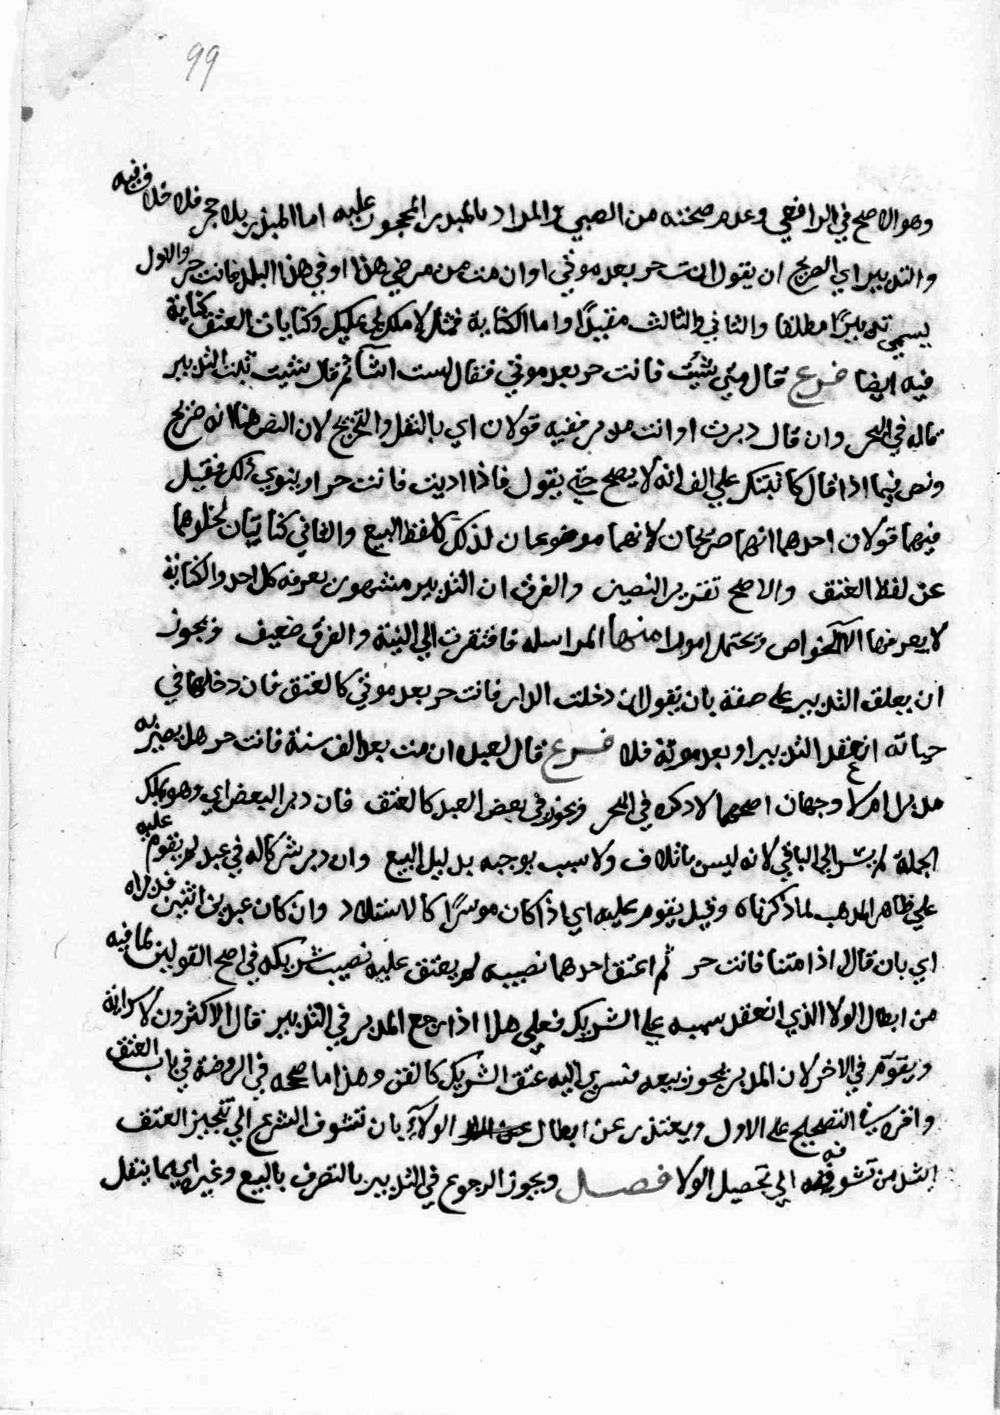 99
وهو الاصح في الرافعي وعدم صحته من الصبي والمراد بالمبذر المحجور عليه اما المبذر بلا حجر فلا خلاف فيه
والتدبير اي الصريح ان يقول انت حر بعد موتي او ان مت من مرضي هذا او في هذا البلد فانت حر والاول
يسمي تدبيرًا مطلقا والثاني والثالث مقيدًا واما الكناية فمثل لا ملك لي عليك وكنايات العتق كناية
فيه ايضا فرع قال متي شئت فانت حر بعد موتي فقال لست اشا ثم قال شئت ثبت التدبير
قاله في البحر وان قال دبرت او انت مدبر ففيه قولان اي بالنقل والتخريج لان النص هنا انه صريح
ونص فيما اذا قال كاتبتك علي الف انه لا يصح حتي يقول فاذا اديت فانت حر او ينوي ذلك فقيل
فيهما قولان احدهما انهما صريحان لانهما موضوعان لذلك كلفظ البيع والثاني كنايتان لخلوهما
عن لفظ العتق والاصح تقرير النصين والفرق ان التدبير مشهور يعرفه كل احد والكتابة
لا يعرفها الا الخواص وتحتمل امورا منها المراسله فافتقرت الي النية والفرق ضعيف ويجوز
ان يعلق التدبير علي صفة بان يقول ان دخلت الدار فانت حر بعد موتي كالعتق فان دخلها في
حياته انعقد التدبير او بعد موته فلا فرع قال لعبده ان مت بعد الف سنة فانت حر هل يصير به
مدبرا ام لا وجهان اصحهما لا ذكره في البحر ويجوز في بعض العبد كالعتق فان دبر البعض اي وهو يملك
الجملة لم يسر الي الباقي لانه ليس باتلاف ولا سبب يوجبه بدليل البيع وان دبر شركا له في عبد لم يقوم عليه
علي ظاهر المذهب لما ذكرناه وقيل يقوم عليه اي اذا كان موسرًا كالاستيلاد وان كان عبد بين اثنين فدبراه
اي بان قال اذا متنا فانت حر ثم اعتق احدهما نصيبه لم يعتق عليه نصيب شريكه في اصح القولين لما فيه
من ابطال الولا الذي انعقد سببه علي الشريك فعلي هذا اذا رجع المدبر في التدبير قال الاكثرون لا سراية
ويقوّم في الاخر لان المدبر يجوز بيعه فيسري اليه عتق الشريك كالقن وهذا ما صححه في الروضة في باب العتق
واقره في التصحيح علي الاول ويعتذر عن ابطال الولاء بان تشوف الشرع الي تنجيز العتق
اشد من تشوفه الي تحصيل الولا فصل ويجوز الرجوع في التدبير بالتصرف بالبيع وغيره اي بما ينقل